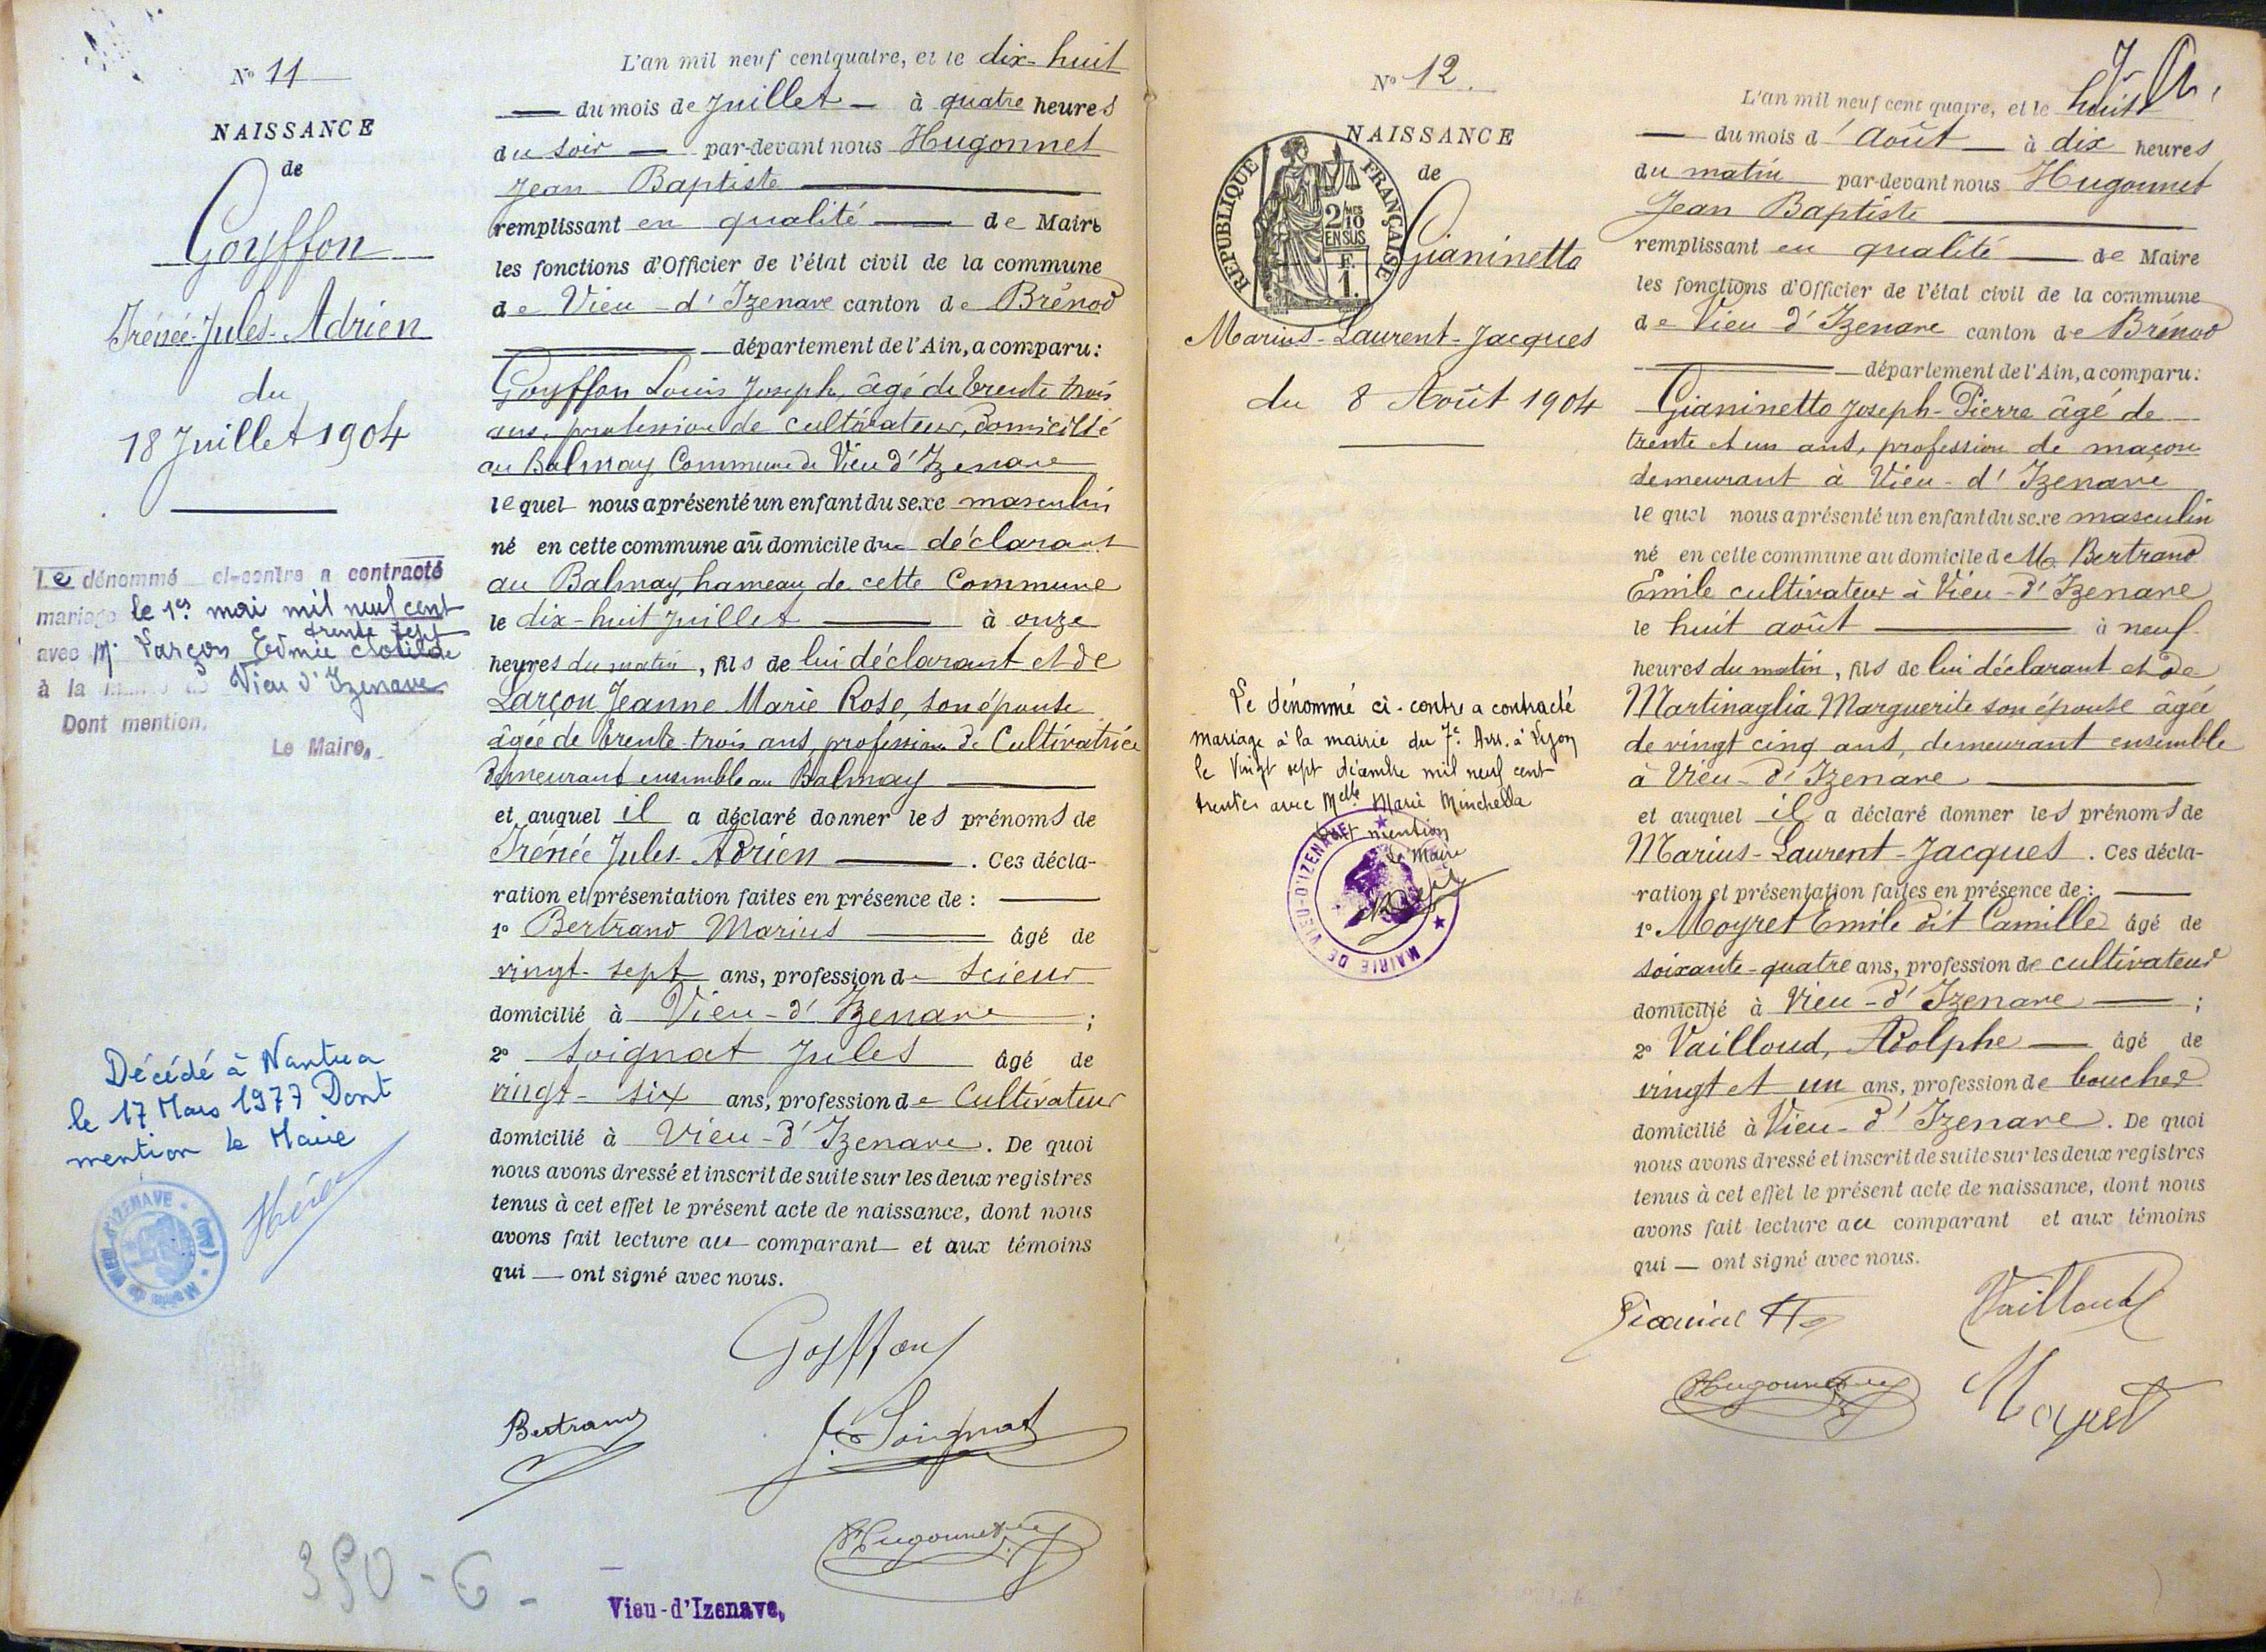 N° 11
NAISSANCE
de
Goyffon
Irénée-Jules-Adrien
du
18 Juillet 1904
Le dénommé ci-contre a contracté
mariage le 1er mai mil neuf cent
trente sept
avec M. Larçon Edmée Clotilde
à la mairie de Vieu d'Izenave
Dont mention.
Le Maire,
Décédé à Nantua
le 17 Mars 1977 Dont
mention Le Maire
L'an mil neuf cent quatre, et le dix-huit
du mois de Juillet — à quatre heures
du soir — par-devant nous Hugonnet
Jean Baptiste
remplissant en qualité — de Maire
les fonctions d'Officier de l'état civil de la commune
de Vieu-d'Izenave canton de Brénod
département de l'Ain, a comparu :
Goyffon Louis Joseph, âgé de trente trois
ans, profession de cultivateur, domicilié
au Balmay Commune de Vieu d'Izenave
lequel nous a présenté un enfant du sexe masculin
né en cette commune au domicile du déclarant
au Balmay, hameau de cette Commune
le dix-huit Juillet — à onze
heures du matin, fils de lui déclarant et de
Larçon Jeanne Marie Rose, son épouse
âgée de trente-trois ans, profession de Cultivatrice
demeurant ensemble au Balmay
et auquel il a déclaré donner les prénoms de
Irénée Jules-Adrien — . Ces décla-
ration et présentation faites en présence de :
1° Bertrand Marius — âgé de
vingt-sept ans, profession de Scieur
domicilié à Vieu-d'Izenave ;
2° Soignat Jules âgé de
vingt-six ans, profession de Cultivateur
domicilié à Vieu-d'Izenave. De quoi
nous avons dressé et inscrit de suite sur les deux registres
tenus à cet effet le présent acte de naissance, dont nous
avons fait lecture au comparant et aux témoins
qui — ont signé avec nous.
Goyffon
Bertrand
J. Soignat
Hugonnet
390-6-
Vieu-d'Izenave,
N° 12.
NAISSANCE
de
RÉPUBLIQUE FRANÇAISE
2/10mes
EN SUS
F.
1.
Gianinetto
Marius-Laurent-Jacques
du 8 Août 1904
Le dénommé ci-contre a contracté
mariage à la mairie du 7e Arr. à Lyon
le vingt sept décembre mil neuf cent
trente avec Melle Marie Minchella
Dont mention
Le Maire
MAIRIE DE VIEU-D'IZENAVE
L'an mil neuf cent quatre, et le huit
du mois d'Août — à dix heures
du matin par-devant nous Hugonnet
Jean Baptiste
remplissant en qualité — de Maire
les fonctions d'Officier de l'état civil de la commune
de Vieu d'Izenave canton de Brénod
département de l'Ain, a comparu :
Gianinetto Joseph-Pierre âgé de
trente et un ans, profession de maçon
demeurant à Vieu-d'Izenave
lequel nous a présenté un enfant du sexe masculin
né en cette commune au domicile de M. Bertrand
Emile cultivateur à Vieu-d'Izenave
le huit août — à neuf
heures du matin, fils de lui déclarant et de
Martinaglia Marguerite son épouse âgée
de vingt cinq ans, demeurant ensemble
à Vieu-d'Izenave
et auquel il a déclaré donner les prénoms de
Marius-Laurent-Jacques. Ces décla-
ration et présentation faites en présence de :
1° Moyret Emile dit Camille âgé de
soixante-quatre ans, profession de cultivateur
domicilié à Vieu-d'Izenave — ;
2° Vailloud, Adolphe — âgé de
vingt et un ans, profession de boucher
domicilié à Vieu-d'Izenave. De quoi
nous avons dressé et inscrit de suite sur les deux registres
tenus à cet effet le présent acte de naissance, dont nous
avons fait lecture au comparant et aux témoins
qui — ont signé avec nous.
Vailloud
Hugonnet
Moyret